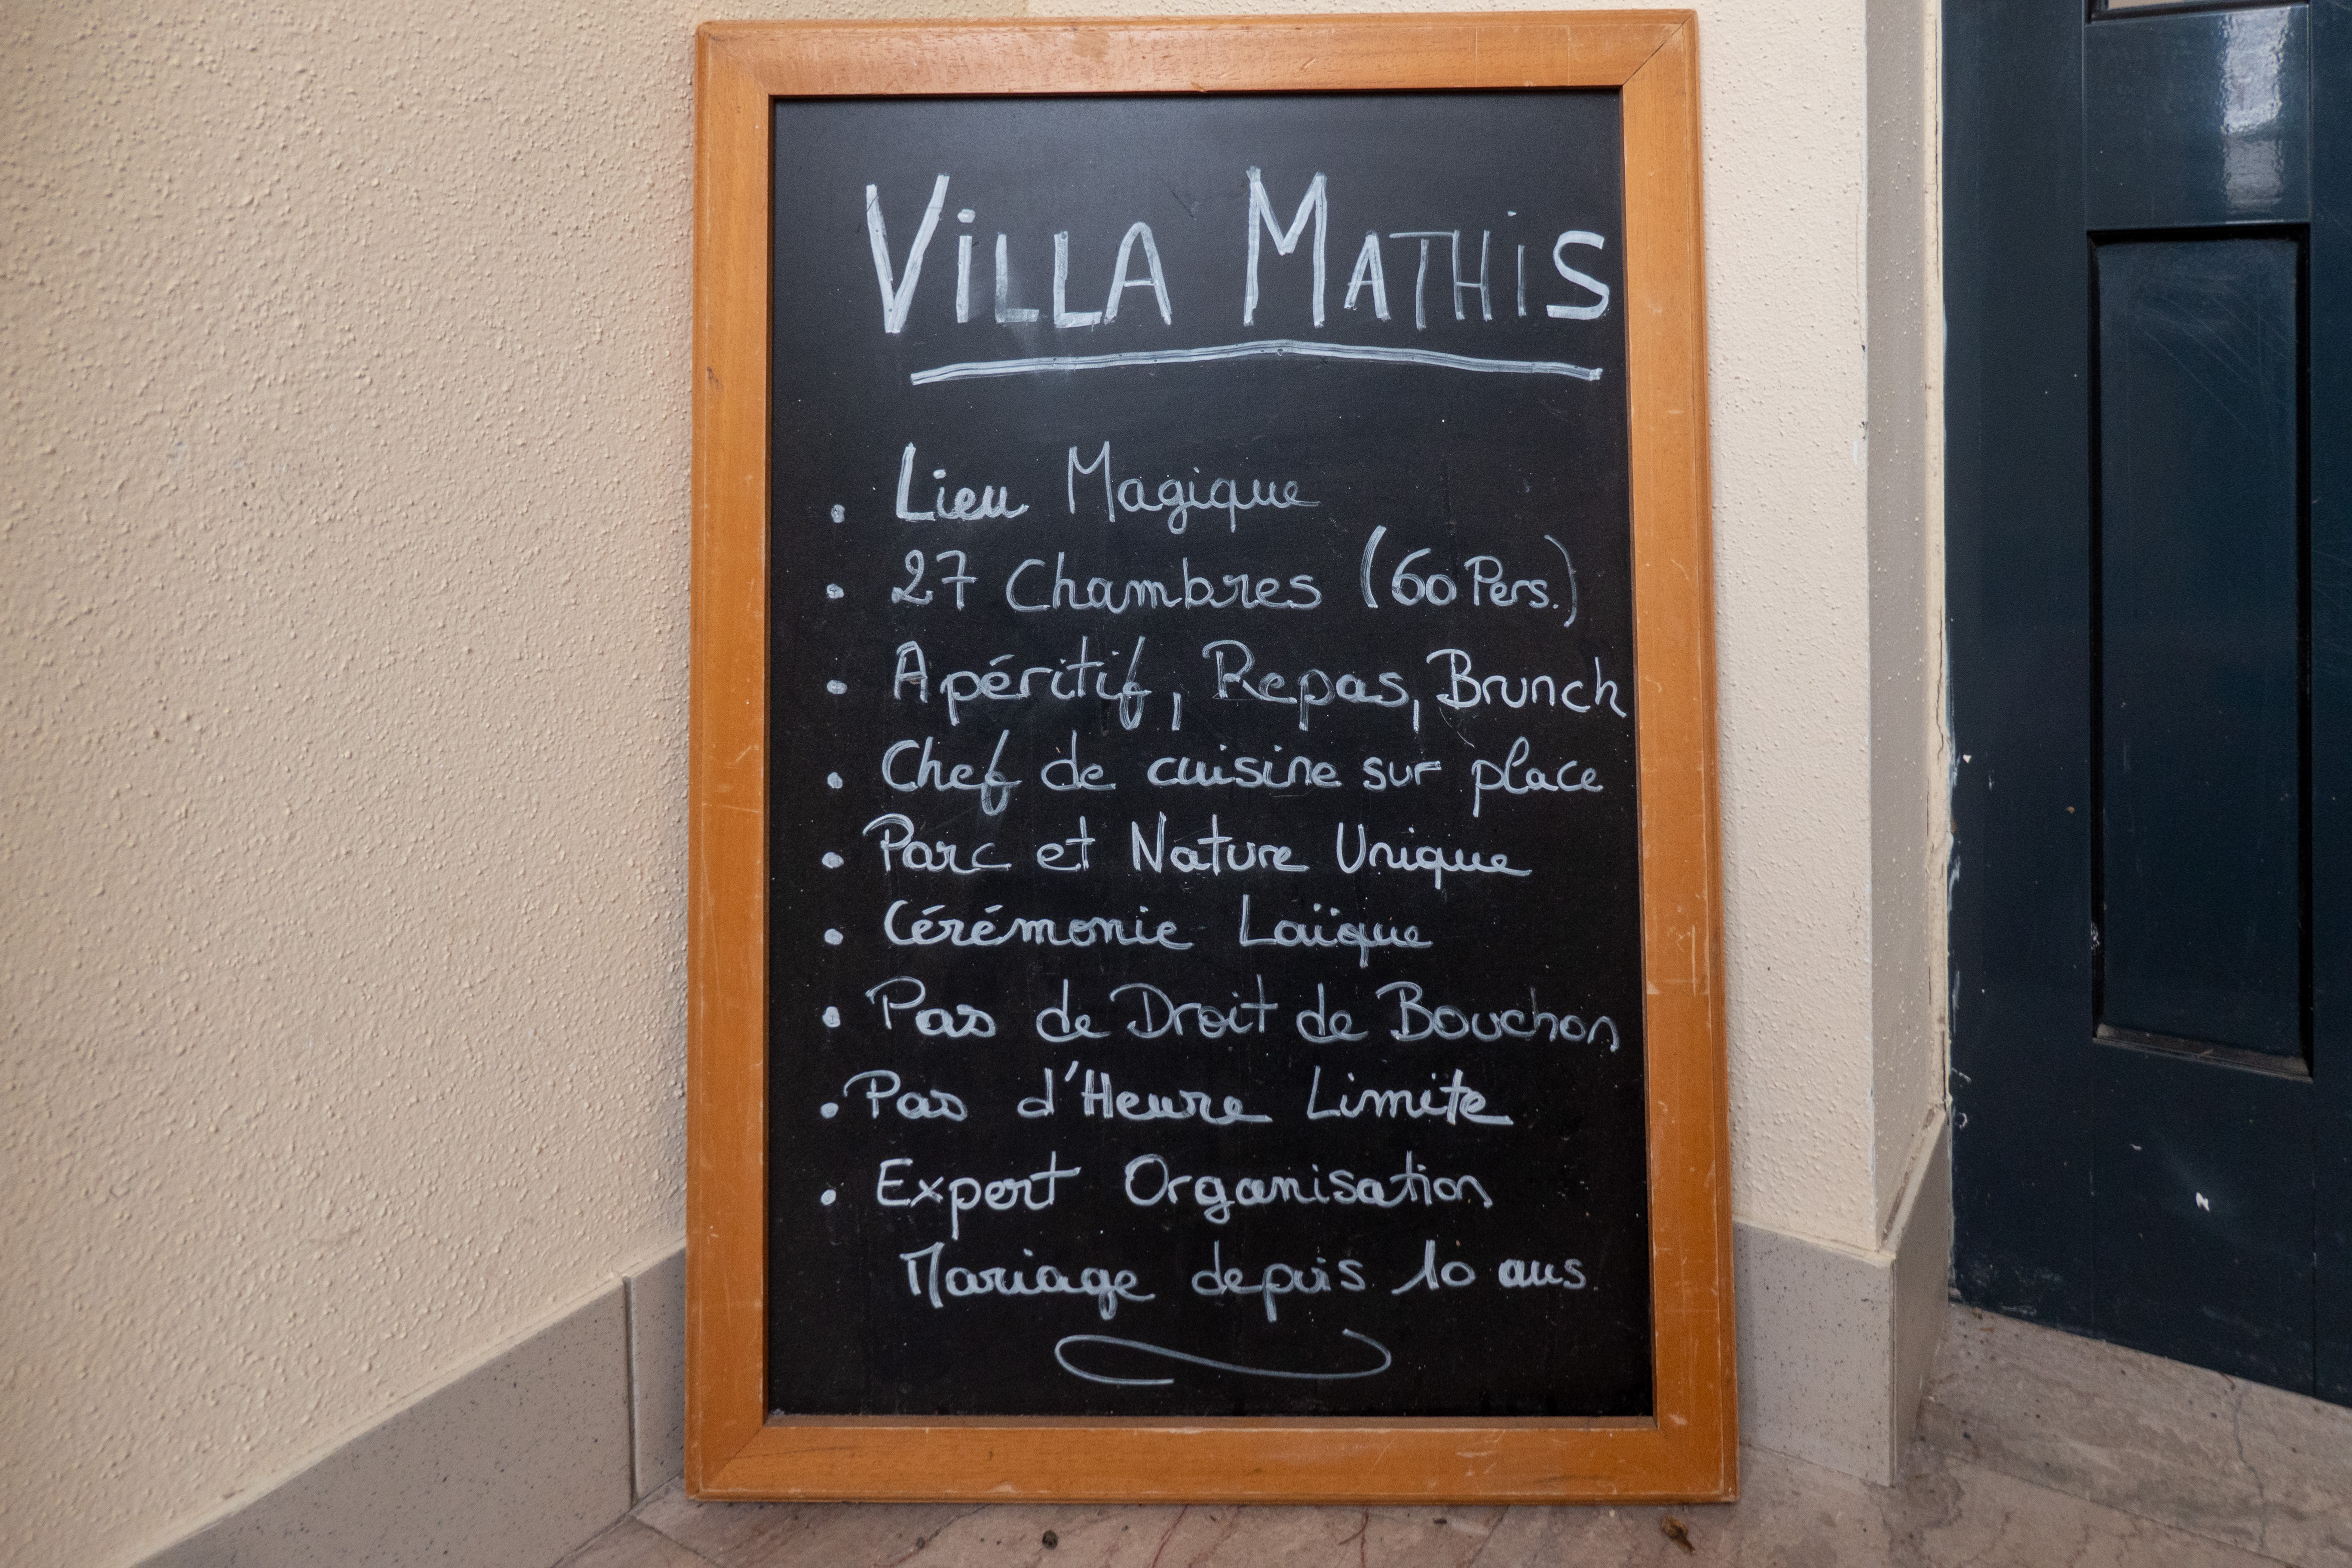 ViLLA MATHiS
• Lieu Magique
• 27 Chambres (60 Pers.)
• Apéritif, Repas, Brunch
• Chef de cuisine sur place
• Parc et Nature Unique
• Cérémonie Laïque
• Pas de Droit de Bouchon
• Pas d'Heure Limite
• Expert Organisation
Mariage depuis 10 ans